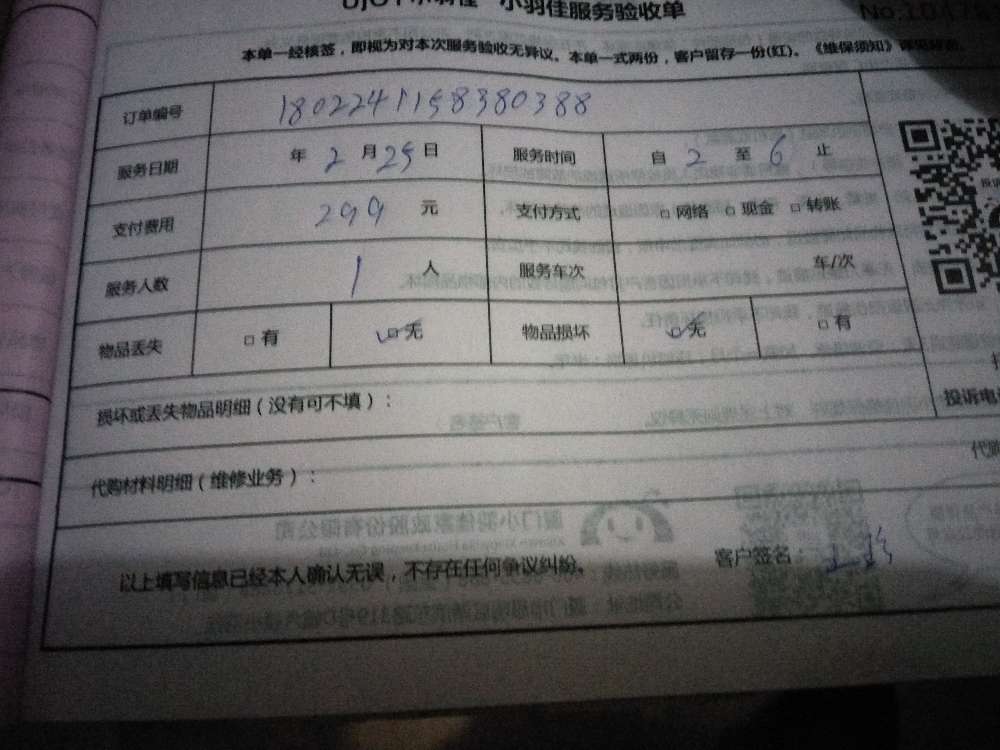 小羽佳服务验收单
本单一经核签，即视为对本次服务验收无异议。本单一式两份，客户留存一份(红)。《维保须知》
订单编号 1802241158380388
服务日期 年 2 月 25 日 服务时间 自 2 至 6 止
支付费用 299 元 支付方式 □ 网络 □ 现金 □ 转账
服务人数 1 人 服务车次 车/次
物品丢失 □ 有 ☑ 无 物品损坏 ☑ 无 □ 有
损坏或丢失物品明细（没有可不填）：
投诉电
代购材料明细（维修业务）：
代购
以上填写信息已经本人确认无误，不存在任何争议纠纷。 客户签名：